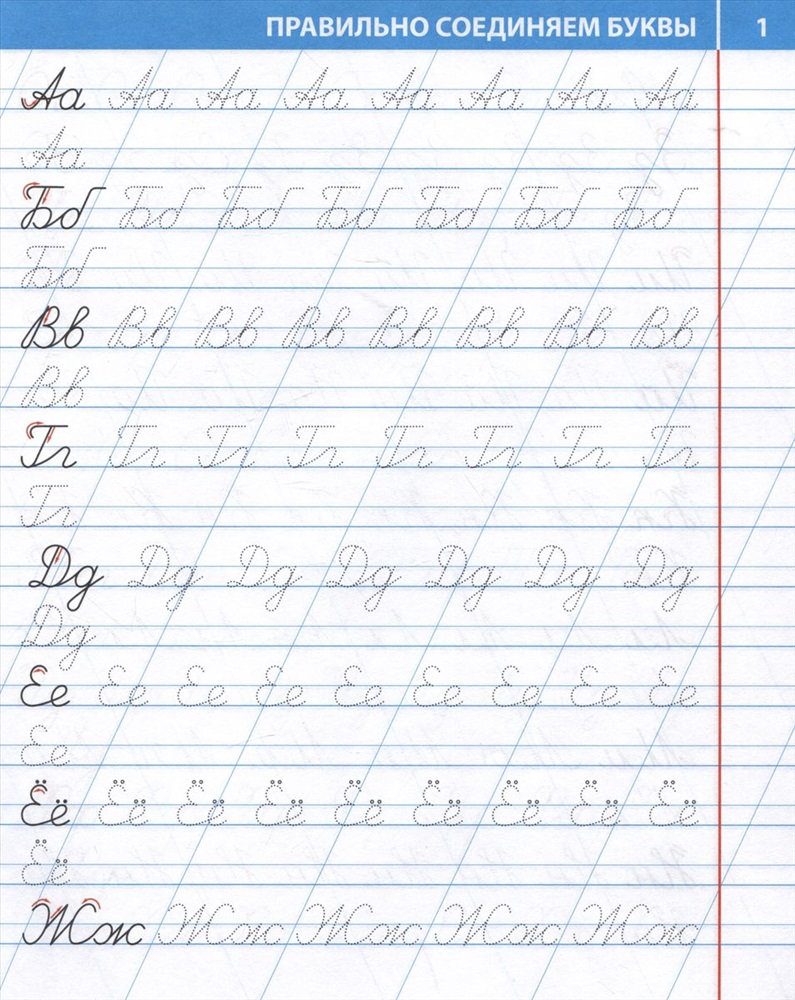 ПРАВИЛЬНО СОЕДИНЯЕМ БУКВЫ 1
Аа Аа Аа Аа Аа Аа Аа Аа
Аа
Бб Бб Бб Бб Бб Бб Бб
Бб
Вв Вв Вв Вв Вв Вв Вв Вв
Вв
Гг Гг Гг Гг Гг Гг Гг Гг
Гг
Дд Дд Дд Дд Дд Дд Дд
Дд
Ее Ее Ее Ее Ее Ее Ее Ее Ее
Ее
Ёё Ёё Ёё Ёё Ёё Ёё Ёё Ёё Ёё
Ёё
Жж Жж Жж Жж Жж